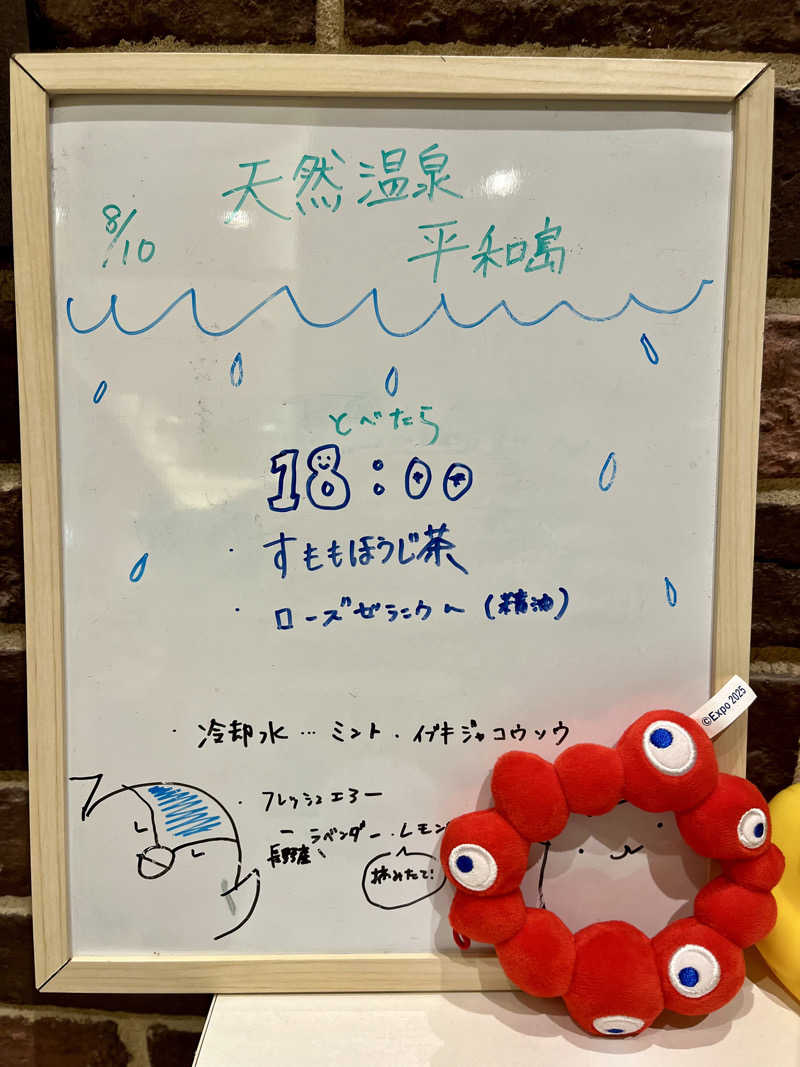 天然温泉
8/10
平和島
とべたら
18:00
・すももほうじ茶
・ローズゼラニウム(精油)
・冷却水…ミント・イブキジャコウソウ
・フレッシュエネー
ーラベンダー・レモン
長野産
摘みたて!
©Expo 2025